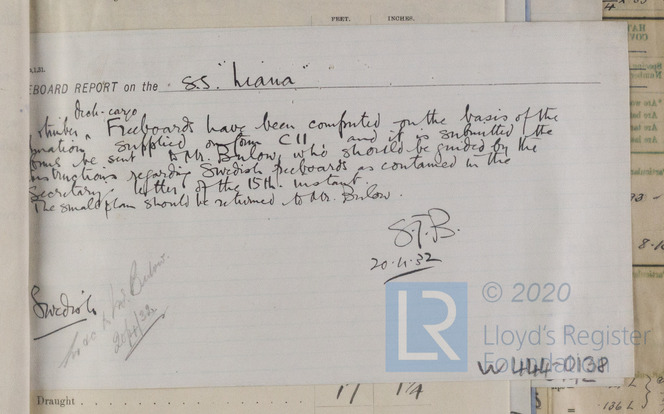 FEET. INCHES.
EBOARD REPORT on the S.S. "Liana"
Deck-cargo
timber " Freeboards have been computed on the basis of the
mation supplied on form C11, and it is submitted the
orms be sent to Mr. Bulow, who should be guided by the
nstructions regarding Swedish freeboards as contained in the
Secretary's letter of the 15th instant.
The small plan should be returned to Mr. Bulow.
S.T.B.
20.4.32
Swedish
to Mr Bulow.
20/4/32
© 2020
LR
Lloyd's Register
Foundation
W444-0138
Draught